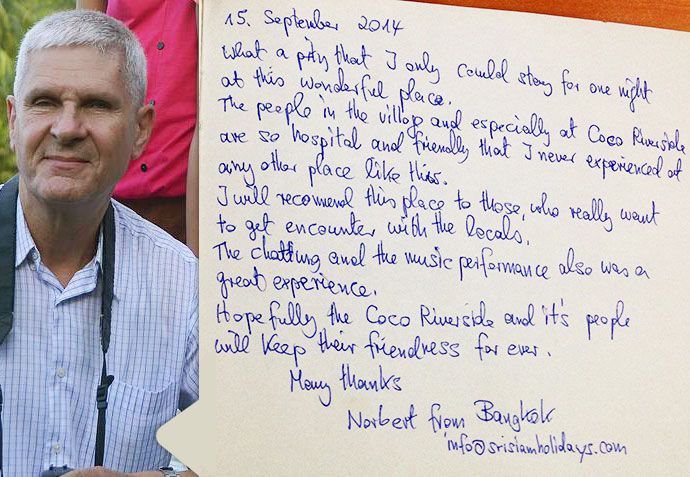 15. September 2014
What a pity that I only could stay for one night
at this wonderful place.
The people in the village and especially at Coco Riverside
are so hospital and friendly that I never experienced at
any other place like this.
I will recommend this place to those, who really want
to get encounter with the locals.
The chatting and the music performance also was a
great experience.
Hopefully the Coco Riverside and it's people
will keep their friendness for ever.
Many thanks
Norbert from Bangkok
info@srisiamholidays.com